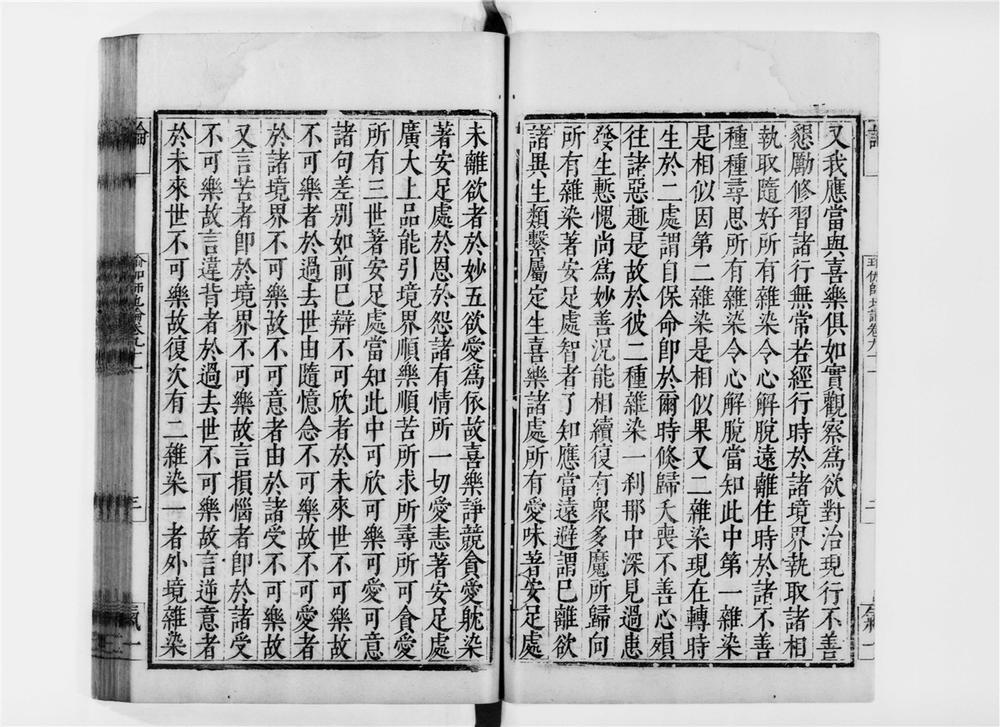 又我應當與喜樂俱如實觀察爲欲對治現行不善
懇勵修習諸行無常若經行時於諸境界執取諸相
執取隨好所有雜染令心解脫遠離住時於諸不善
種種尋思所有雜染令心解脫當知此中第一雜染
是相似因第二雜染是相似果又二雜染現在轉時
生於二處謂自保命即於爾時倏歸夭喪不善心殞
往諸惡趣是故於彼二種雜染一刹那中深見過患
發生慙愧尚爲妙善況能相續復有衆多魔所歸向
所有雜染著安足處智者了知應當遠避謂已離欲
諸異生類繫屬定生喜樂諸處所有愛味著安足處
未離欲者於妙五欲愛爲依故喜樂諍競貪愛躭染
著安足處於恩於怨諸有情所一切愛恚著安足處
廣大上品能引境界順樂順苦所求所尋所可貪愛
所有三世著安足處當知此中可欣可樂可愛可意
諸句差別如前已辯不可欣者於未來世不可樂故
不可樂者於過去世由隨憶念不可樂故不可愛者
於諸境界不可樂故不可意者由於諸受不可樂故
又言苦者即於境界不可樂故言損惱者即於諸受
不可樂故言違背者於過去世不可樂故言逆意者
於未來世不可樂故復次有二雜染一者外境雜染